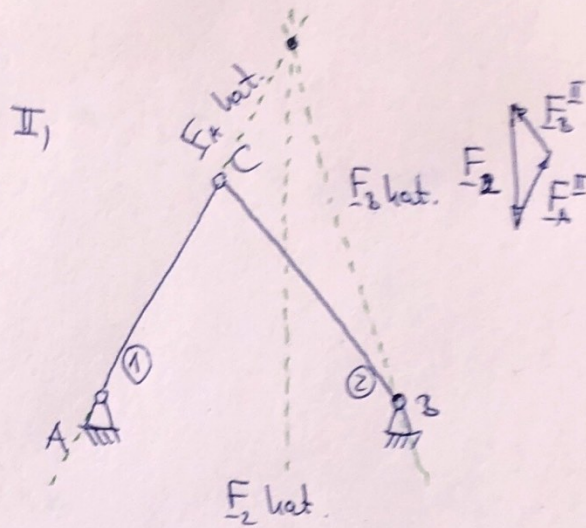 II,
F_A hat.
C
F_B hat.
F_2
F_B^II
F_A^II
1
2
A
B
F_2 hat.